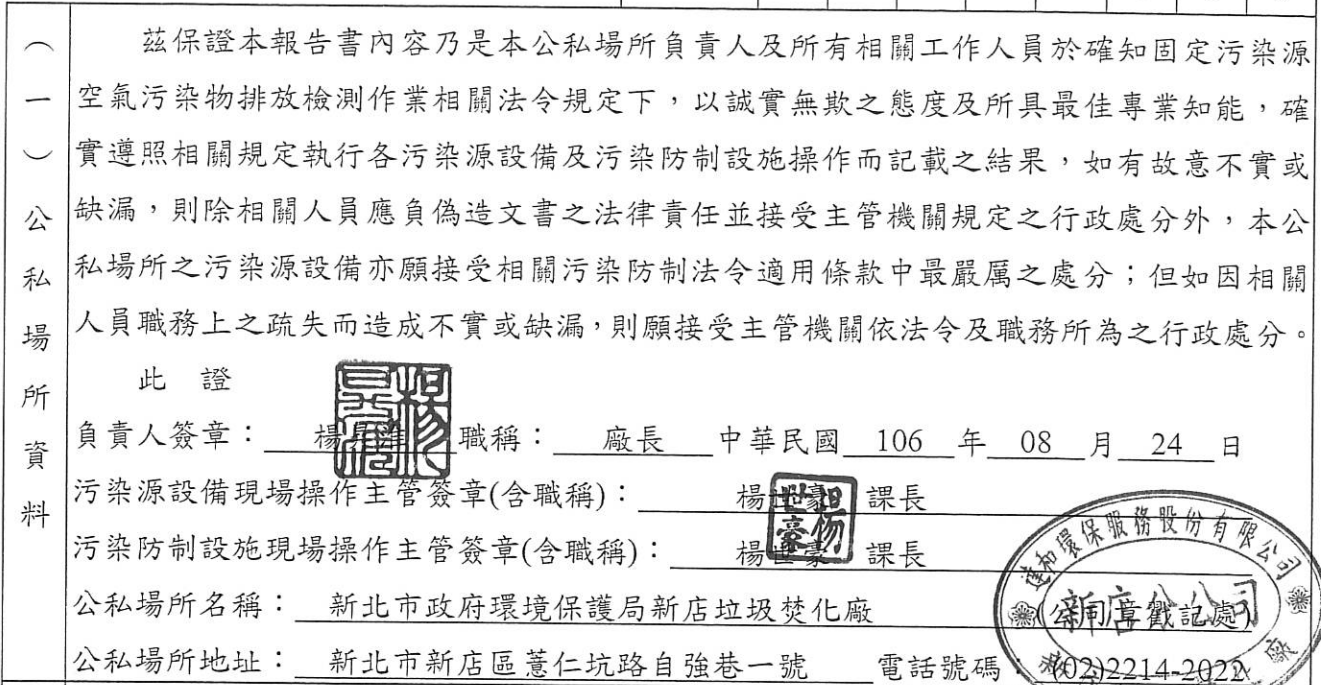 (一)公私場所資料
茲保證本報告書內容乃是本公私場所負責人及所有相關工作人員於確知固定污染源
空氣污染物排放檢測作業相關法令規定下，以誠實無欺之態度及所具最佳專業知能，確
實遵照相關規定執行各污染源設備及污染防制設施操作而記載之結果，如有故意不實或
缺漏，則除相關人員應負偽造文書之法律責任並接受主管機關規定之行政處分外，本公
私場所之污染源設備亦願接受相關污染防制法令適用條款中最嚴厲之處分；但如因相關
人員職務上之疏失而造成不實或缺漏，則願接受主管機關依法令及職務所為之行政處分。
此 證
負責人簽章： 楊 職稱： 廠長 中華民國 106 年 08 月 24 日
污染源設備現場操作主管簽章(含職稱)： 楊世豪 課長
楊世豪
污染防制設施現場操作主管簽章(含職稱)： 楊世豪 課長
達和環保服務股份有限公司
新店分公司
公私場所名稱： 新北市政府環境保護局新店垃圾焚化廠 (公司章戳記處)
公私場所地址： 新北市新店區薏仁坑路自強巷一號 電話號碼：(02)2214-2022